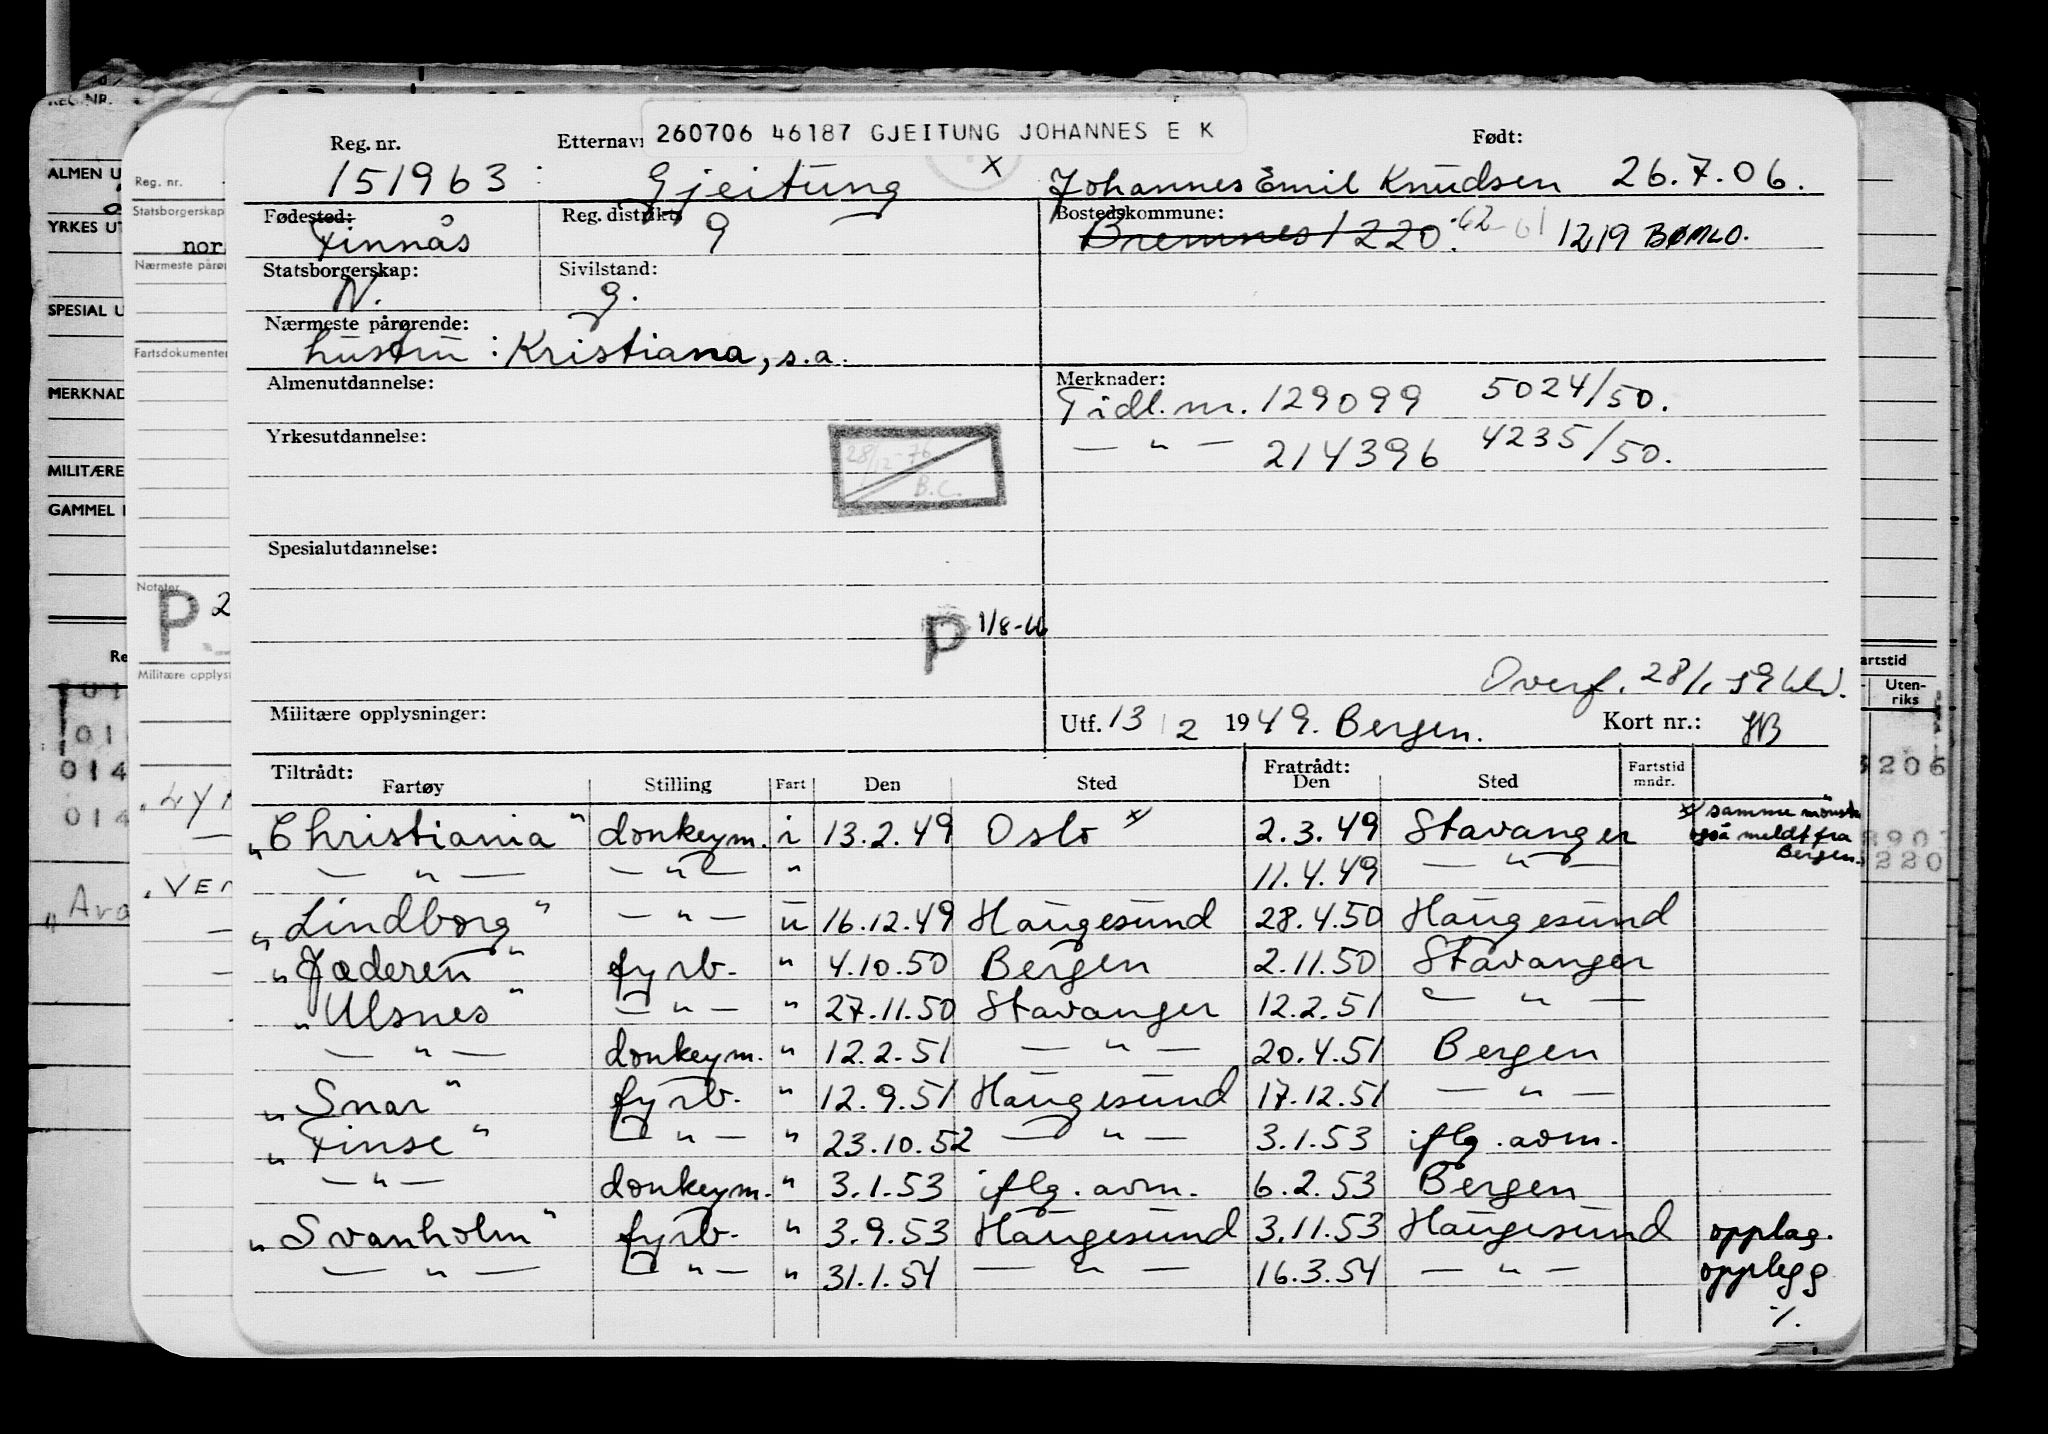 260706 46187 GJEITUNG JOHANNES E K
Reg. nr. Etternavn Født:
151963 Gjeitung x Johannes Emil Knudsen 26.7.06.
Fødested: Reg. distrikt: Bostedskommune:
Finnås 9 Bremnes 1220. 1219 BØMLO.
Statsborgerskap: Sivilstand:
N. g.
Nærmeste pårørende:
hustru : Kristiana, s.a.
Almenutdannelse: Merknader:
Tidl. nr. 129099 5024/50.
Yrkesutdannelse:
— " — 214396 4235/50.
28/12-76
B.C.
Spesialutdannelse:
P 1/8-66
Overf. 28/1 59
Militære opplysninger: Utf. 13/2 1949. Bergen. Kort nr.:
Tiltrådt: Fratrådt: Fartstid
Fartøy Stilling Fart Den Sted Den Sted mndr.
"Christiania" donkeym. i 13.2.49 Oslo x/ 2.3.49 Stavanger x/ samme mønstr.
også meldt fra
Bergen.
— " — — " — " 11.4.49 — " —
"Lindborg" — " — u 16.12.49 Haugesund 28.4.50 Haugesund
"Jæderen" fyrb. " 4.10.50 Bergen 2.11.50 Stavanger
"Ulsnes" — " — " 27.11.50 Stavanger 12.2.51 — " —
— " — donkeym. " 12.2.51 — " — 20.4.51 Bergen
"Snar" fyrb. " 12.9.51 Haugesund 17.12.51 — " —
"Finse" — " — " 23.10.52 — " — 3.1.53 iflg. avm.
— " — donkeym. " 3.1.53 iflg. avm. 6.2.53 Bergen
"Svanholm" fyrb. " 3.9.53 Haugesund 3.11.53 Haugesund opplag.
— " — — " — " 31.1.54 — " — 16.3.54 — " — opplegg
./.
REG. NR.
ALMEN U
YRKES UT
SPESIAL U
MERKNAD
MILITÆRE
GAMMEL
Re
014
014
Reg. nr.
Statsborgerskap
nor
Nærmeste pårør
Fartsdokumenter
Notater
P 2
Militære opplys
artstid
Uten-
riks
3206
220